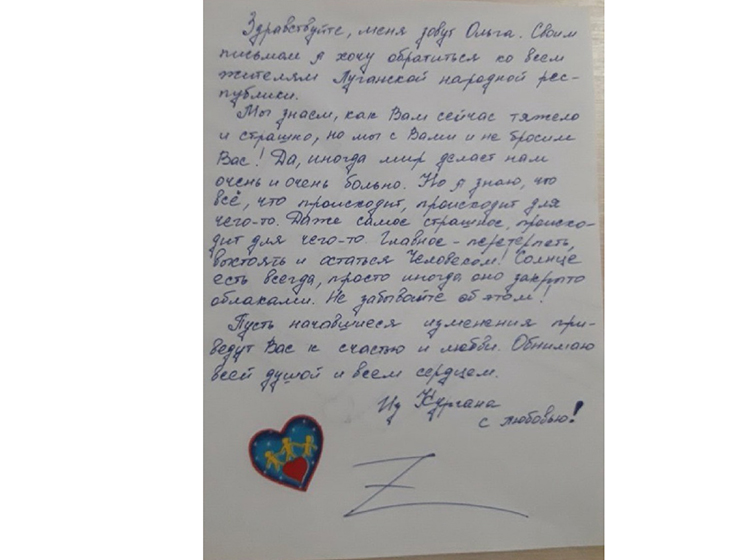 Здравствуйте, меня зовут Ольга. Своим
письмом я хочу обратиться ко всем
жителям Луганской народной рес-
публики.
Мы знаем, как Вам сейчас тяжело
и страшно, но мы с Вами и не бросим
Вас! Да, иногда мир делает нам
очень и очень больно. Но я знаю, что
всё, что происходит, происходит для
чего-то. Даже самое страшное, происхо-
дит для чего-то. Главное - перетерпеть,
выстоять и остаться Человеком! Солнце
есть всегда, просто иногда оно закрыто
облаками. Не забывайте об этом!
Пусть начавшиеся изменения при-
ведут Вас к счастью и любви. Обнимаю
всей душой и всем сердцем.
Из Кургана
с любовью!
Z